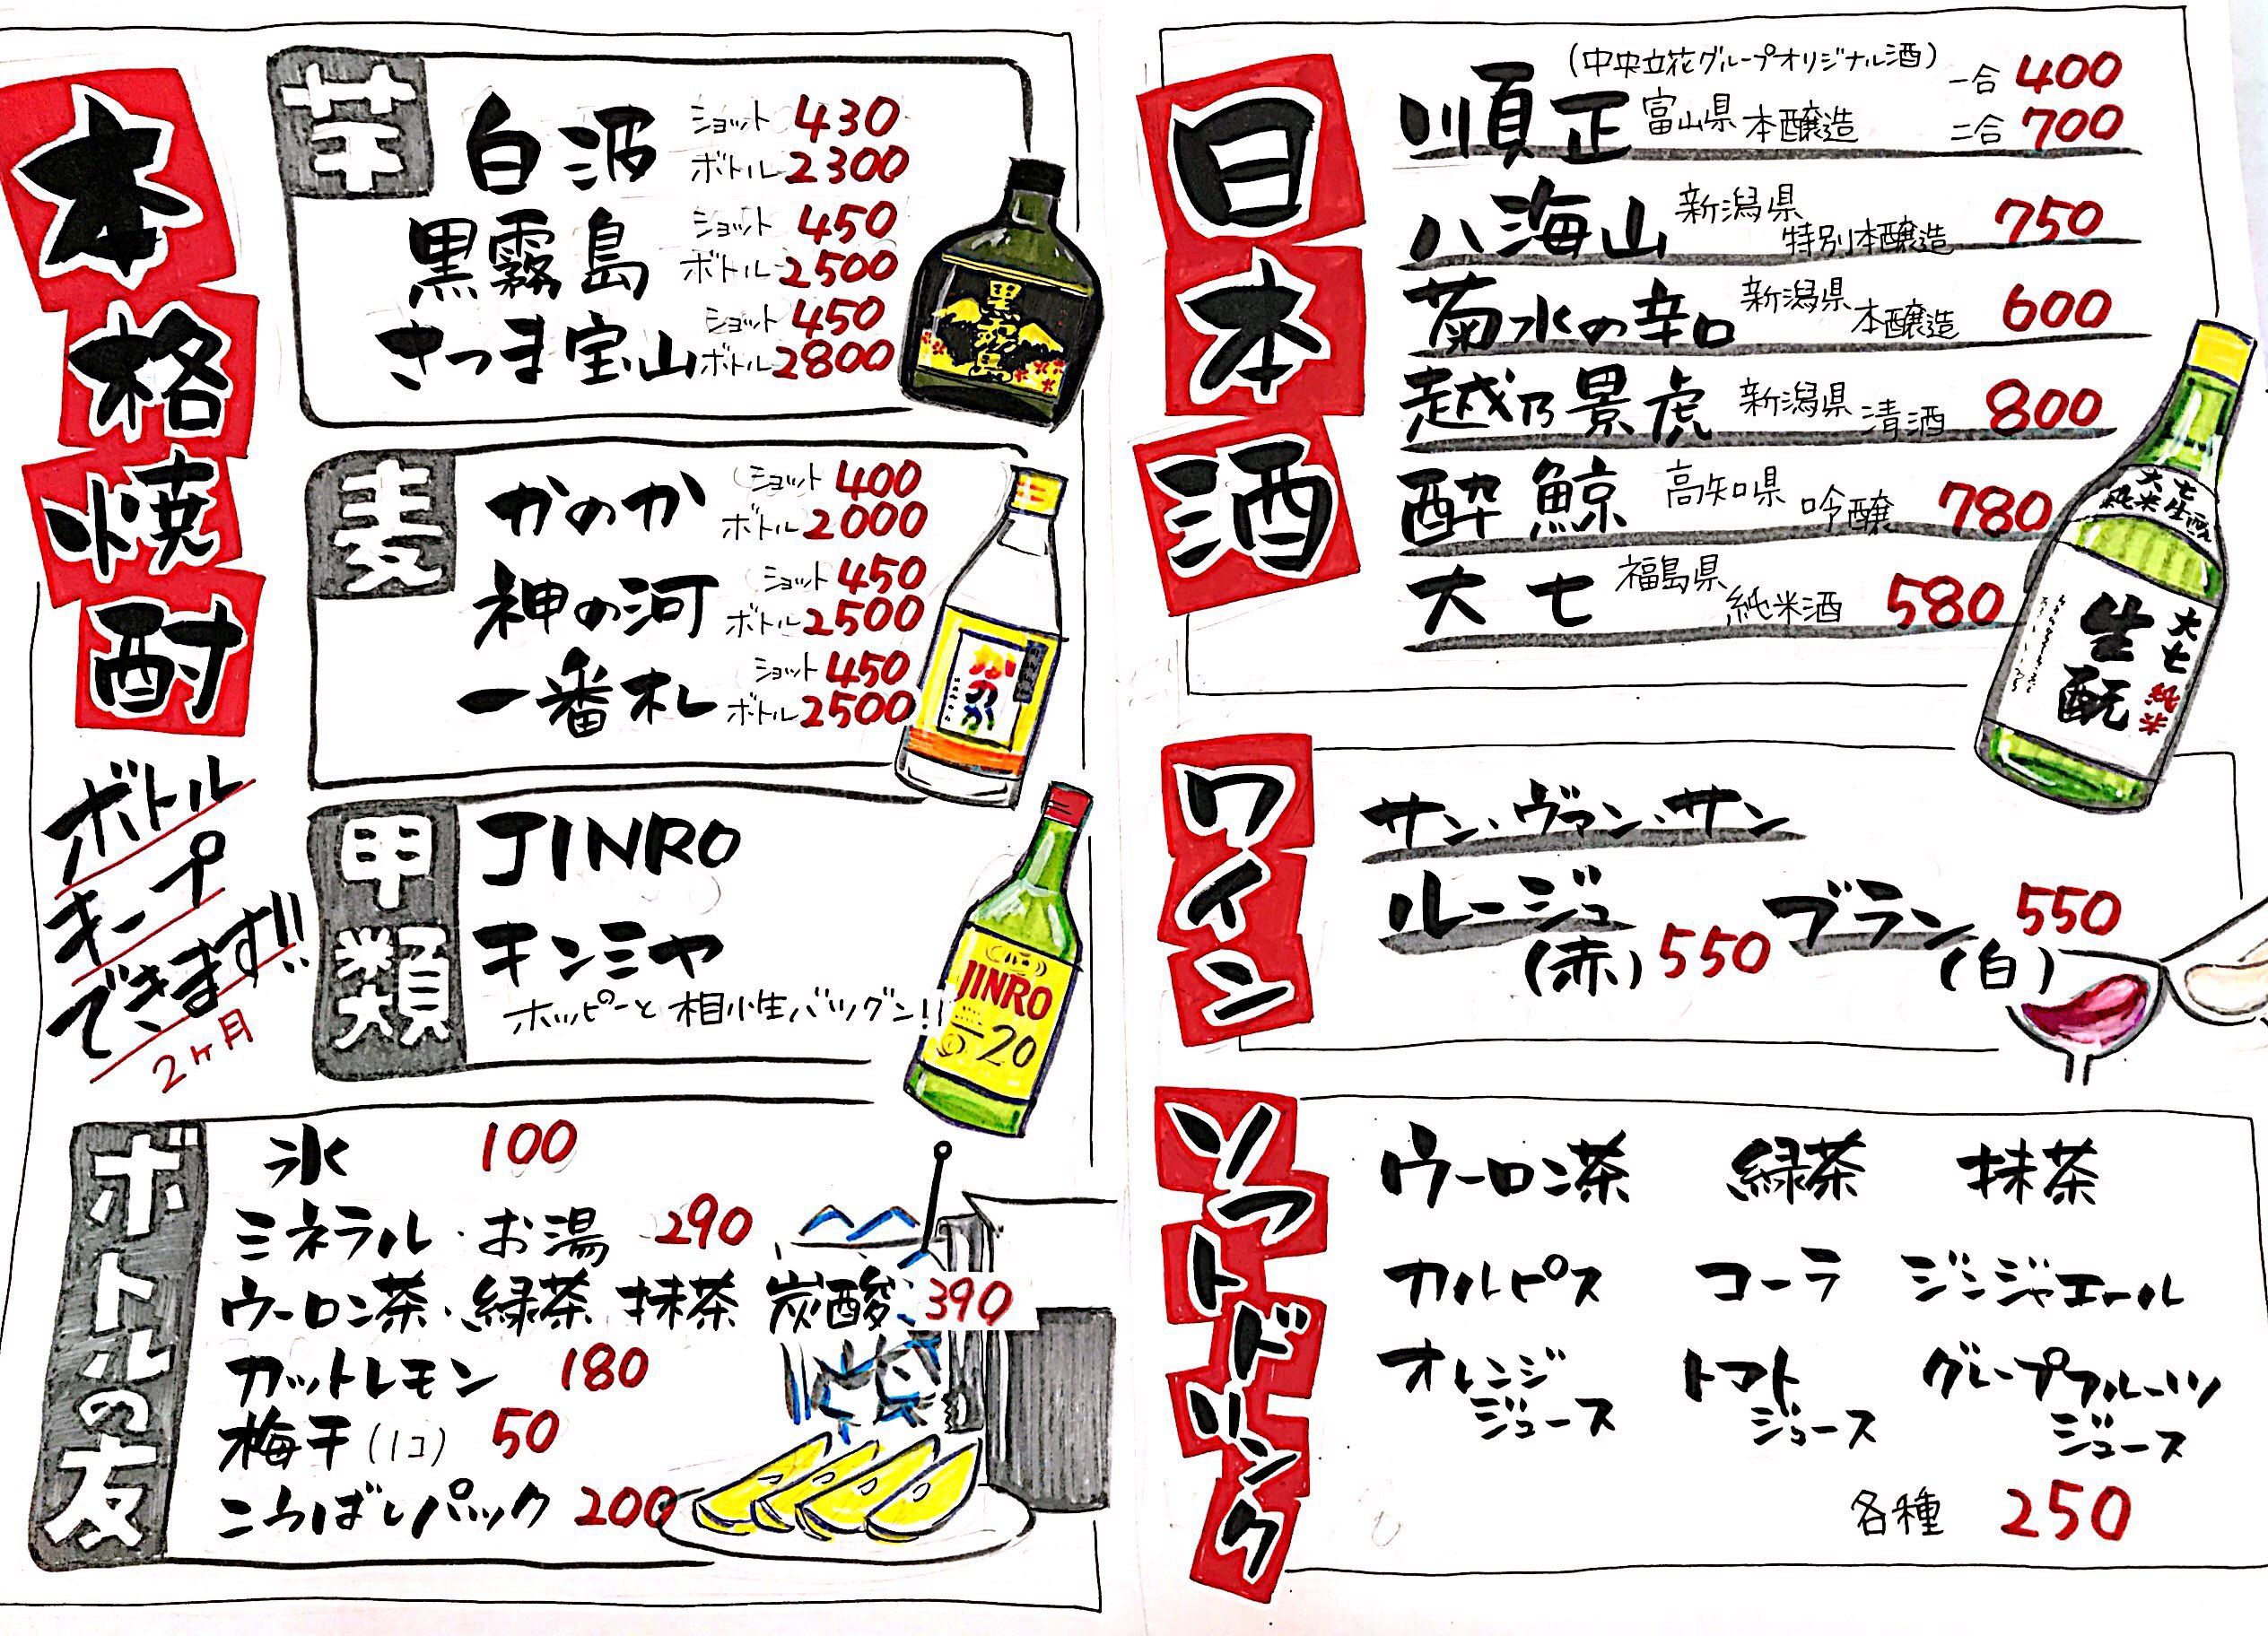 本格焼酎
ボトル
キープ
できます!!
2ヶ月
芋
白波 ショット 430
ボトル 2300
黒霧島 ショット 450
ボトル 2500
さつま宝山 ショット 450
ボトル 2800
黒霧島
麦
かのか ショット 400
ボトル 2000
神の河 ショット 450
ボトル 2500
一番札 ショット 450
ボトル 2500
かのか
甲類
JINRO
キンミヤ
ホッピーと相性バツグン!!
JINRO
20
ボトルの友
氷 100
ミネラル・お湯 290
ウーロン茶・緑茶 抹茶 炭酸 390
カットレモン 180
梅干(1コ) 50
こうばしパック 200
日本酒
(中央立花グループオリジナル酒)
順正 富山県 本醸造 一合 400
二合 700
八海山 新潟県 特別本醸造 750
菊水の辛口 新潟県 本醸造 600
越乃景虎 新潟県 清酒 800
酔鯨 高知県 吟醸 780
大七 福島県 純米酒 580
大七
純米生酛
大七
生酛
純米
ワイン
サン・ヴァン・サン
ルージュ(赤) 550 ブラン(白) 550
ソフトドリンク
ウーロン茶 緑茶 抹茶
カルピス コーラ ジンジャエール
オレンジジュース トマトジュース グレープフルーツジュース
各種 250